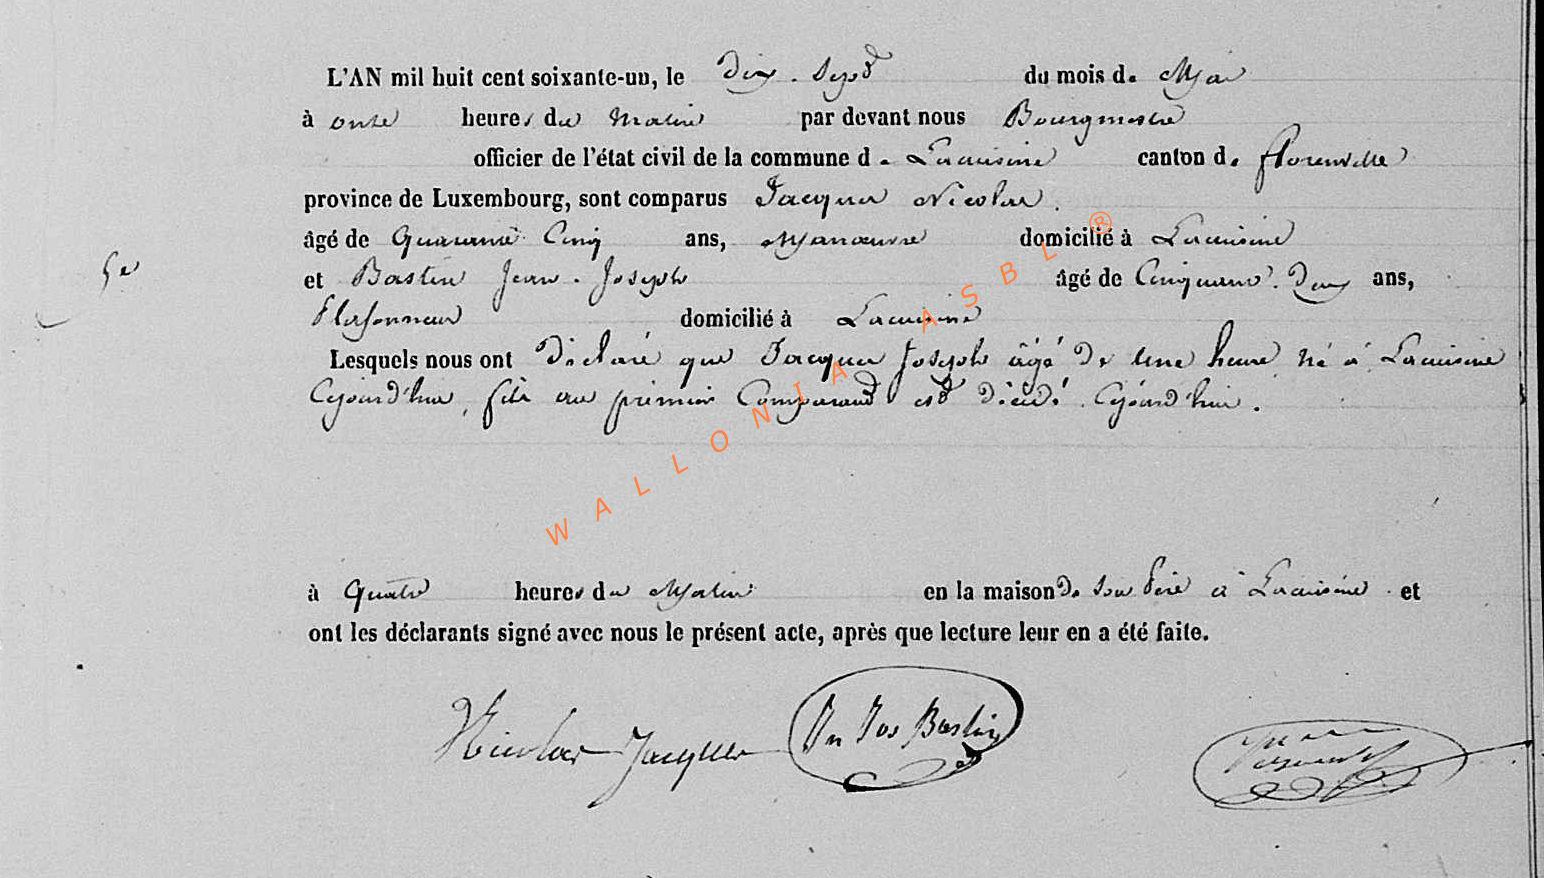 L'AN mil huit cent soixante-un, le dix-sept du mois de Mai
à onze heures du Matin par devant nous Bourgmestre
officier de l'état civil de la commune de Lacuisine canton de florenville
province de Luxembourg, sont comparus Jacques Nicolas.
âgé de Quarante Cinq ans, Manœuvre domicilié à Lacuisine
5e
et Bastin Jean-Joseph âgé de Cinquante-Deux ans,
Plafonneur domicilié à Lacuisine
Lesquels nous ont Déclaré que Jacques Joseph âgé De Une heure né à Lacuisine
Cejourd'hui, fils au premier Comparant est Décédé Cejourd'hui.
à Quatre heures du Matin en la maison De son Père à Lacuisine et
ont les déclarants signé avec nous le présent acte, après que lecture leur en a été faite.
Nicolas Jacques Jn Jos Bastin
WALLONIA ASBL ®